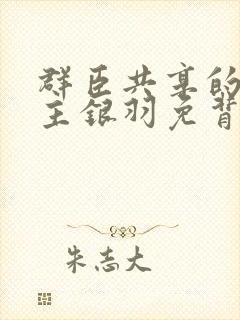 群臣共享的
主银羽免背
朱志大